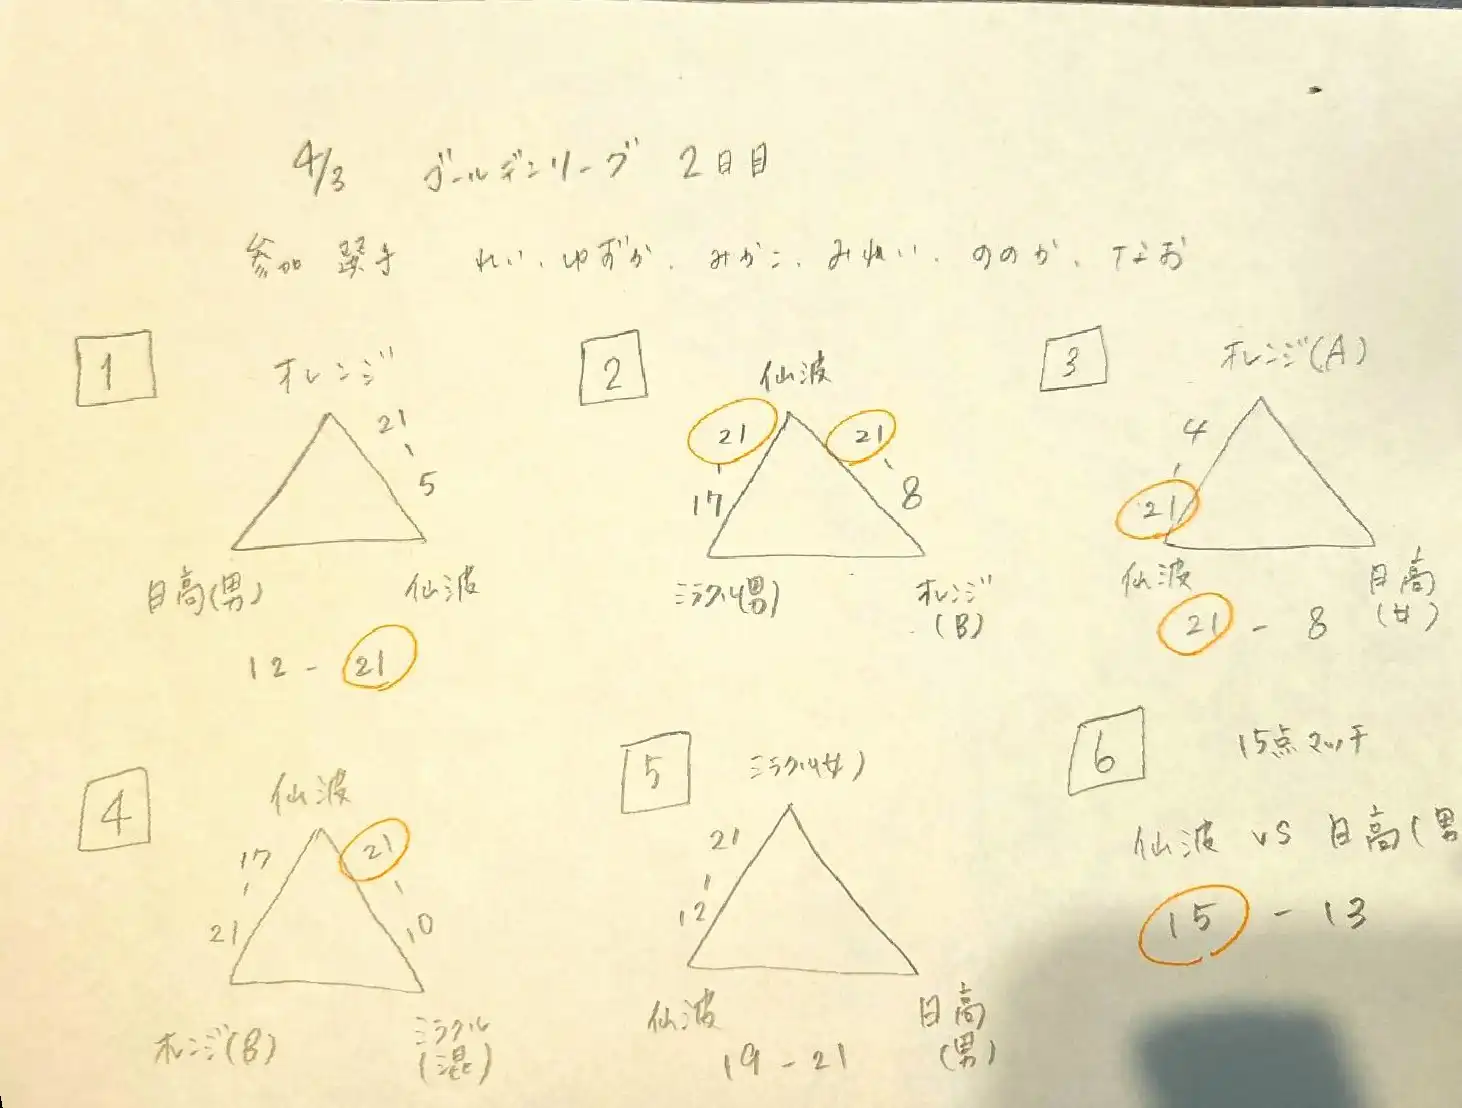 4/3 ゴールデンリーグ 2日目
参加選手 れい、ゆずか、みかこ、みれい、ののか、なお
1
オレンジ
21
-
5
日高(男)
仙波
12 - 21
2
仙波
21
-
17
21
-
8
ミラクル(男)
オレンジ
(B)
3
オレンジ(A)
4
-
21
仙波
日高
(女)
21 - 8
4
仙波
17
-
21
21
-
10
オレンジ(B)
ミラクル
(混)
5
ミラクル(女)
21
-
12
仙波
日高
(男)
19 - 21
6
15点マッチ
仙波 VS 日高(男
15 - 13